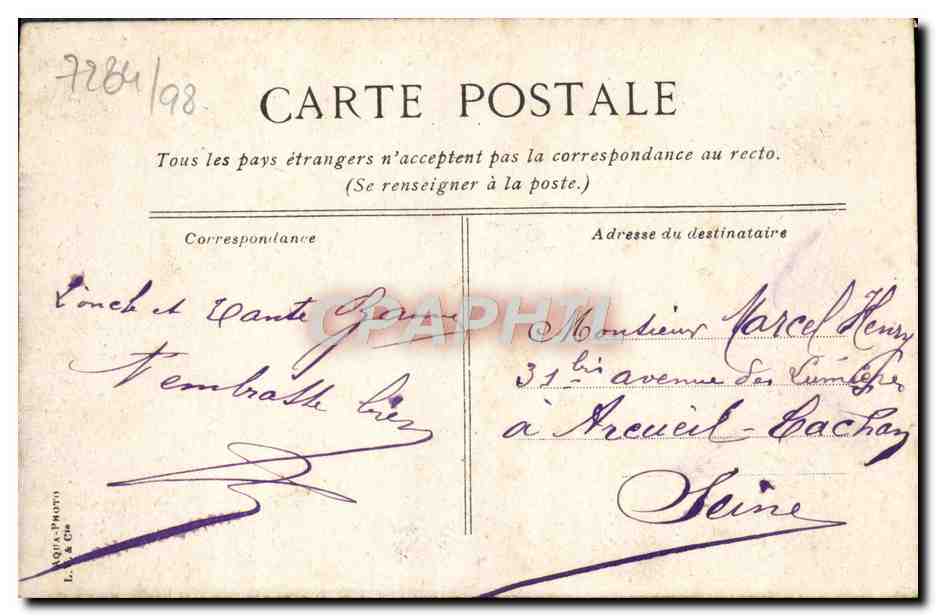 7284/98
CARTE POSTALE
Tous les pays étrangers n'acceptent pas la correspondance au recto.
(Se renseigner à la poste.)
Correspondance
L'oncle et Tante
t'embrasse bien
AQUA-PHOTO
L. & Cie
Adresse du destinataire
Monsieur Marcel Henry
31 bis avenue des
à Arcueil-Cachan
Seine
CPAPHIL